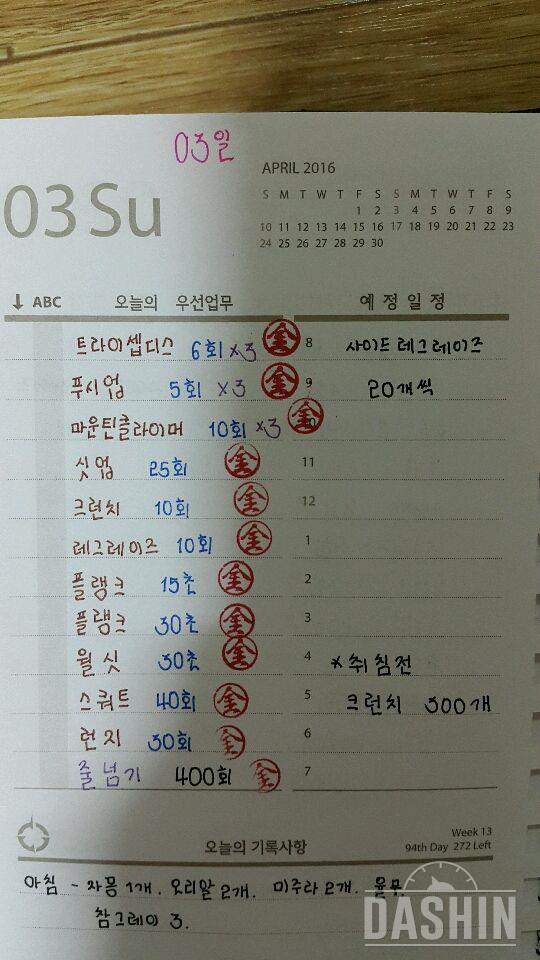 03일
03 Su
APRIL 2016
S M T W T F S S M T W T F S
1 2 3 4 5 6 7 8 9
10 11 12 13 14 15 16 17 18 19 20 21 22 23
24 25 26 27 28 29 30
↓ ABC 오늘의 우선업무 예정일정
트라이셉디스 6회 ×3 金 8 사이드레그레이즈
푸시업 5회 ×3 金 9 20개씩
마운틴클라이머 10회 ×3 金
싯업 25회 金 11
크런치 10회 金 12
레그레이즈 10회 金 1
플랭크 15초 金 2
플랭크 30초 金 3
월싯 30초 金 4 *취침전
스쿼트 40회 金 5 크런치 300개
런지 30회 金 6
줄넘기 400회 金 7
Week 13
오늘의 기록사항 94th Day 272 Left
아침 - 자몽 1개. 오리알 2개. 미주라 2개.
참그레이 3.
DASHIN